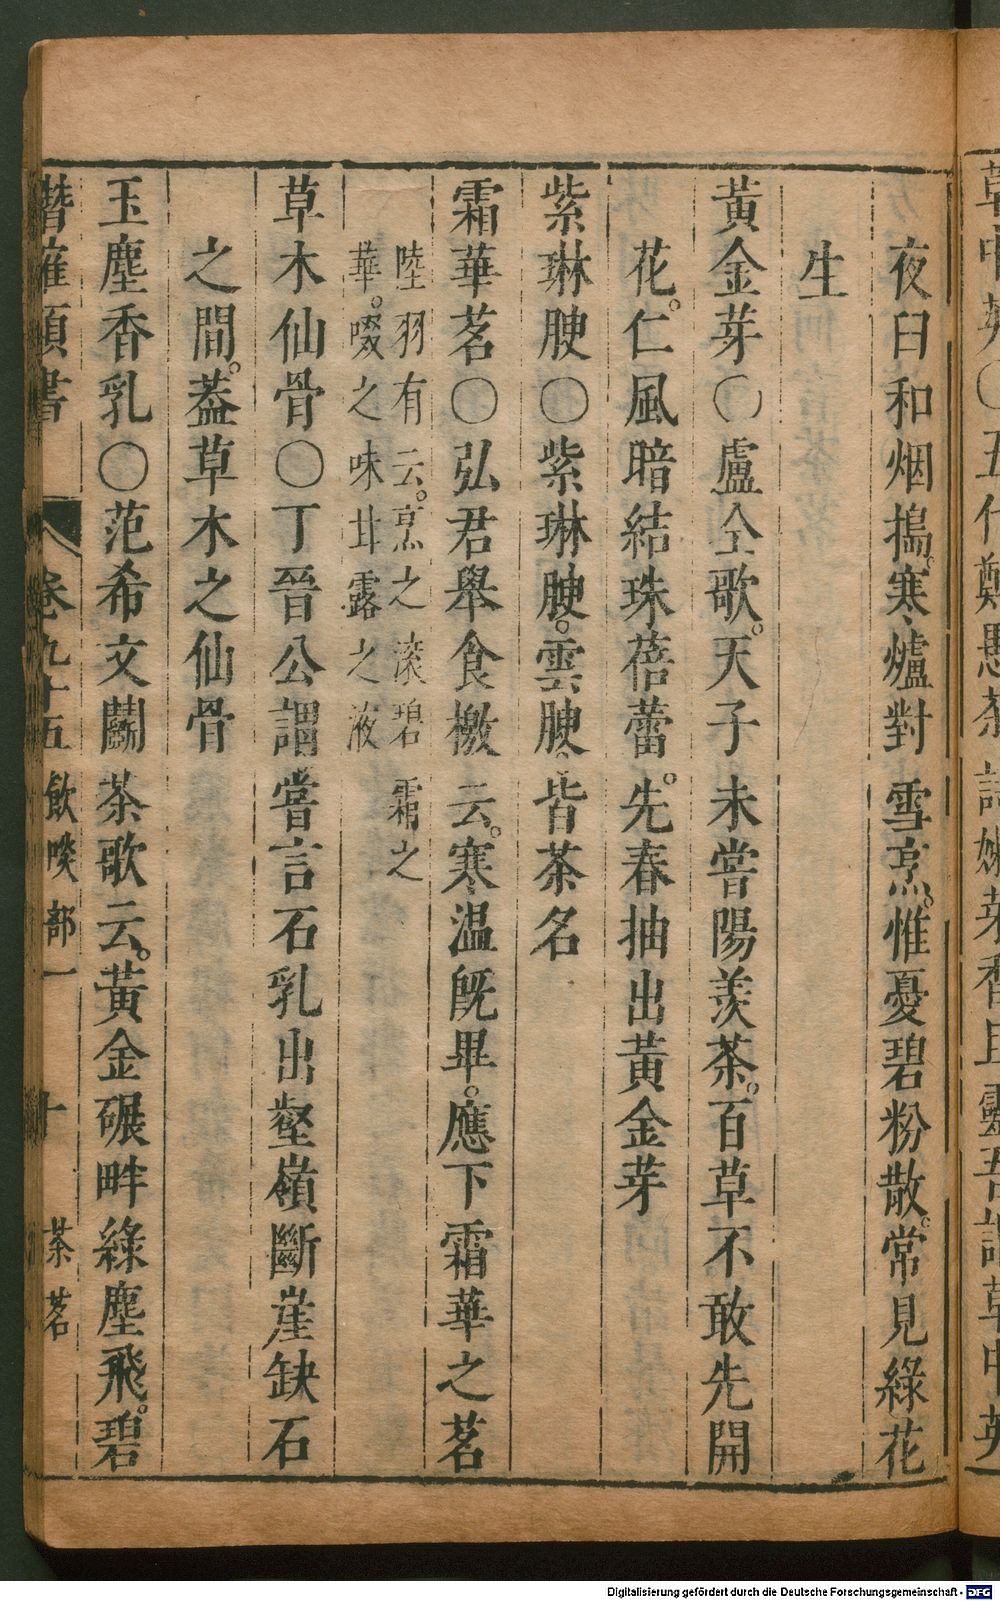 夜臼和烟搗。寒爐對雪烹。惟憂碧粉散。常見綠花
生
黃金芽○盧仝歌。天子未嘗陽羨茶。百草不敢先開
花。仁風暗結珠蓓蕾。先春抽出黃金芽
紫琳腴○紫琳腴。雲腴。皆茶名
霜華茗○弘君舉食檄云。寒溫旣畢。應下霜華之茗
陸羽有云。烹之滚碧霜之
華。啜之味甘露之液
草木仙骨○丁晉公謂嘗言石乳出壑嶺斷崖缺石
之間。葢草木之仙骨
玉塵香乳○范希文鬭茶歌云。黃金碾畔綠塵飛。碧
潛確類書 卷九十五 飲啖部一 十 茶茗